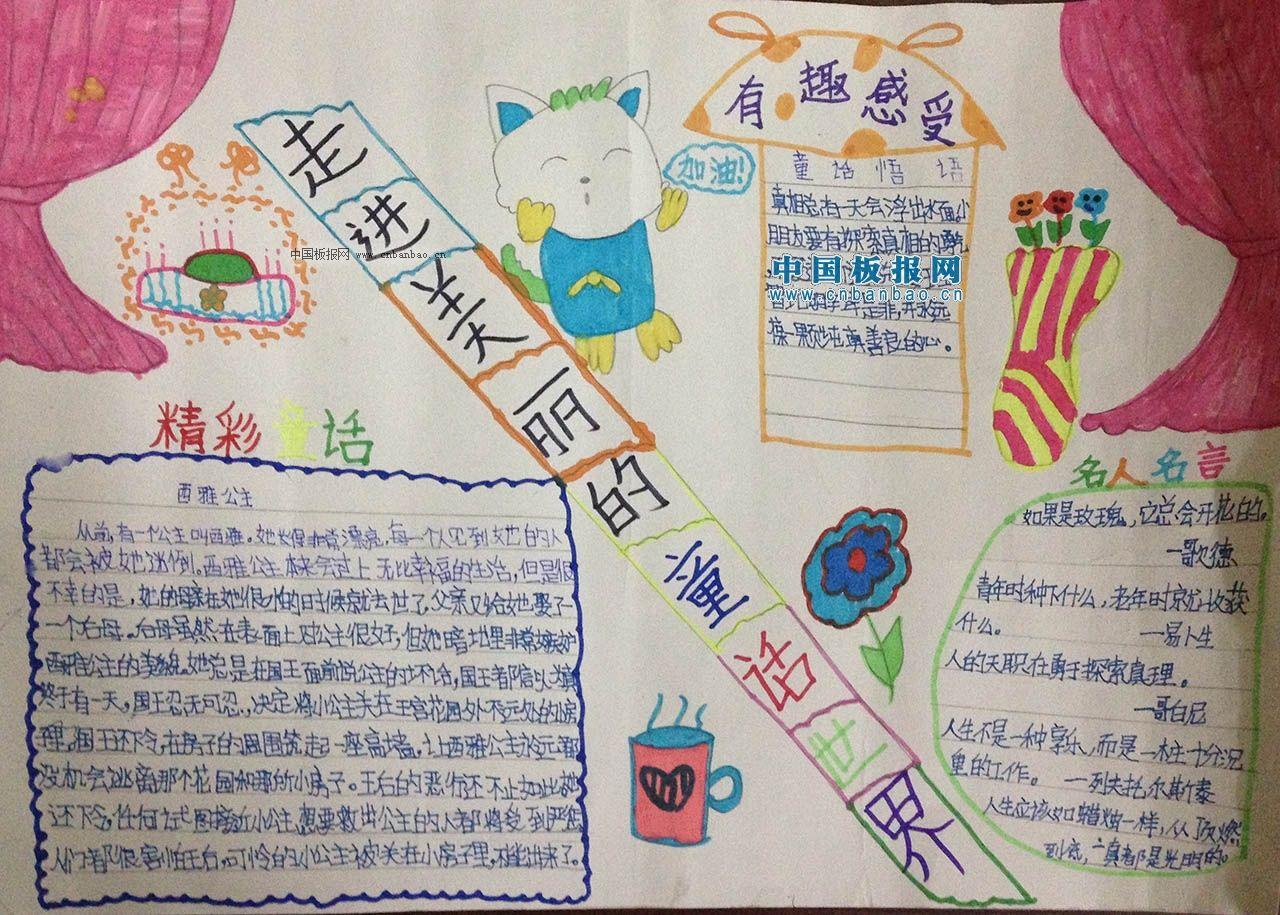 走进美丽的童话世界
加油!
有趣感受
童话悟语
真相总有一天会浮出水面,小
朋友要有探索真相的勇气
中国板报网
www.cnbanbao.cn
是非,并永远
葆一颗纯真善良的心。
中国板报网 www.cnbanbao.cn
精彩童话
西雅公主
从前,有一个公主叫西雅。她长得非常漂亮,每一个人见到她的人
都会被她迷倒。西雅公主本来会过上无比幸福的生活,但是很
不幸的是,她的母亲在她很小的时候就去世了,父亲又给她娶了
一个后母。后母虽然在表面上对公主很好,但她暗地里非常嫉妒
西雅公主的美貌。她总是在国王面前说公主的坏话,国王都信以为真
终于有一天,国王忍无可忍,决定将小公主关在王宫花园外不远处的小房
里。国王还下令,在房子的周围筑起一座高墙。让西雅公主永远都
没机会逃离那个花园和那所小房子。王后的恶行还不止如此,她
还下令,任何试图接近小公主,想要救出公主的人都将受到严惩
人们都很害怕王后。可怜的小公主被关在小房子里,不能出来了。
名人名言
如果是玫瑰,它总会开花的。
—歌德
青年时种下什么,老年时就收获
什么。 —易卜生
人的天职在勇于探索真理。
—哥白尼
人生不是一种享乐,而是一桩十分沉
重的工作。 —列夫托尔斯泰
人生应该如蜡烛一样,从顶燃
到底,一直都是光明的。